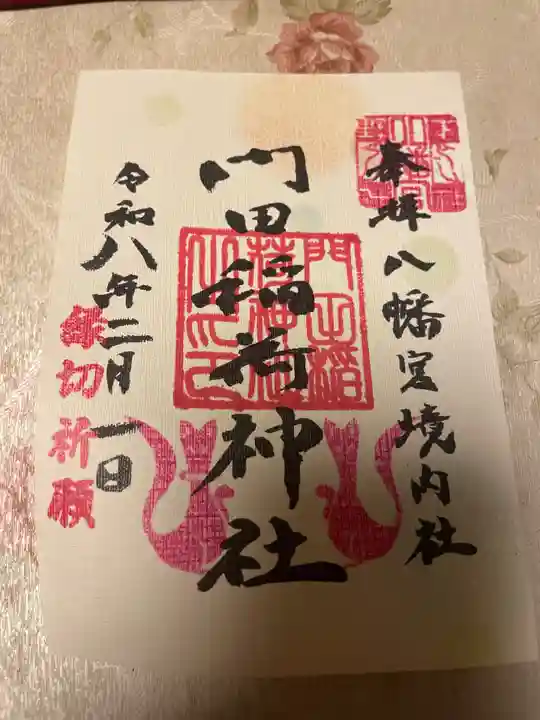 奉拝
八幡宮境内社
門田稲荷神社
令和八年二月一日
縁切祈願